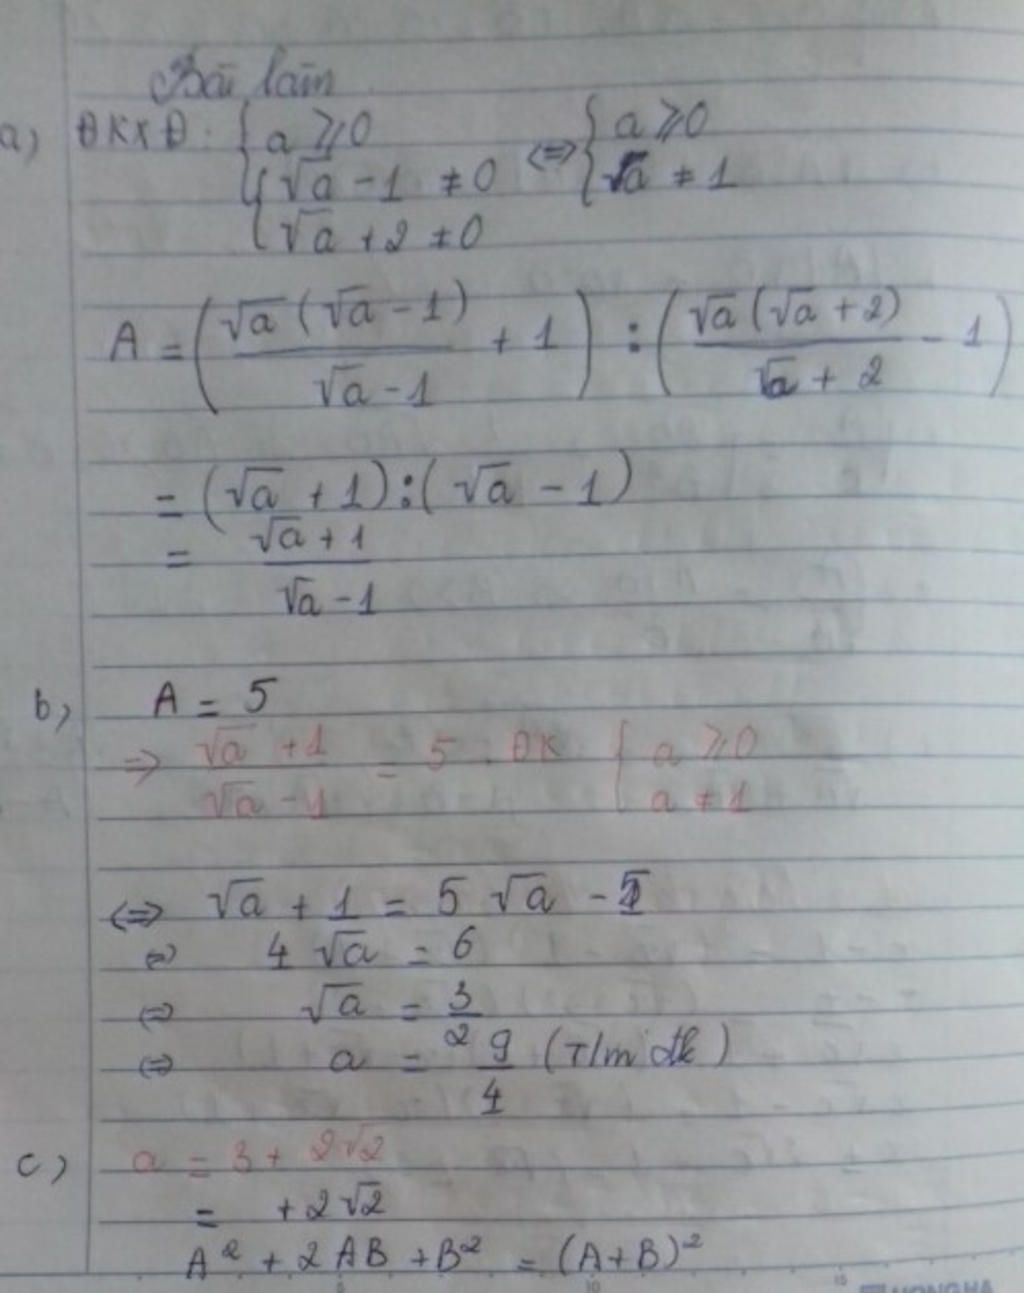 Bài làm
a) ĐKXĐ: { a ⩾ 0 ⇔ { a ⩾ 0
√a - 1 ≠ 0 √a ≠ 1
√a + 2 ≠ 0
A = ( √a (√a - 1) / √a - 1 + 1 ) : ( √a (√a + 2) / √a + 2 - 1 )
= (√a + 1) : (√a - 1)
= √a + 1 / √a - 1
b) A = 5
⇒ √a + 1 / √a - 1 = 5 . ĐK { a ⩾ 0
a ≠ 1
⇔ √a + 1 = 5 √a - 5
⇔ 4 √a = 6
⇔ √a = 3/2
⇔ a = 9/4 (T/m đk)
c) a = 3 + 2√2
= + 2√2
A² + 2AB + B² = (A+B)²
5 10 15
HONG HA